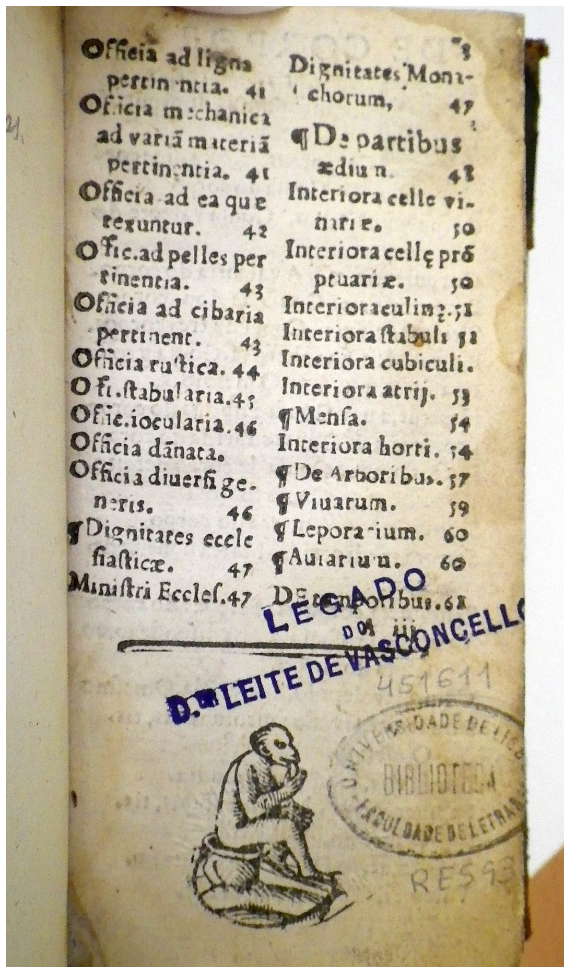 Officia ad ligna
pertinentia. 41
Officia mechanica
ad variã materiã
pertinentia. 41
Officia ad ea quæ
texuntur. 42
Offic.ad pelles per
tinentia. 43
Officia ad cibaria
pertinent. 43
Officia rustica. 44
Offi.stabularia.45
Offic.iocularia.46
Officia dãnata.
Officia diuersi ge-
neris. 46
¶Dignitates eccle
siasticæ. 47
Ministri Eccles.47
Dignitates Mona-
chorum, 47
¶De partibus
ædium. 48
Interiora celle vi-
nariæ. 50
Interiora cellę prõ
ptuariæ. 50
Interiora culinę.51
Interiora stabuli 52
Interiora cubiculi.
Interiora atrij. 53
¶Mensa.  54
Interiora horti. 54
¶De Arboribus. 57
¶Viuarum. 59
¶Leporarium. 60
¶Auiarium. 60
DE temporibus.61
iij
LEGADO
DO
D.or LEITE DE VASCONCELLO
451611
UNIVERSIDADE DE LISB
BIBLIOTECA
FACULDADE DE LETRAS
RES93